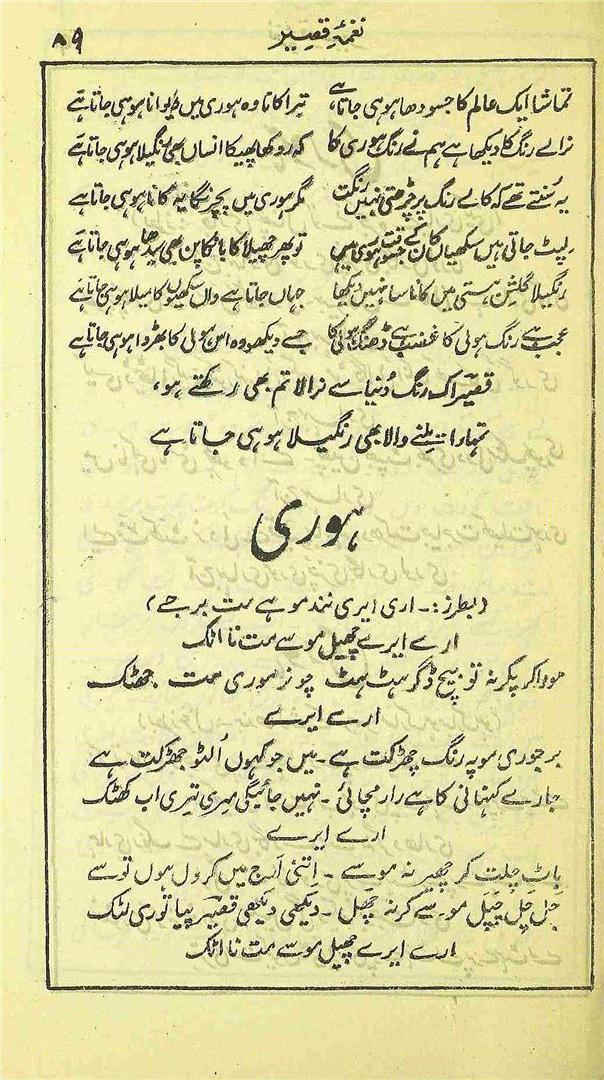 نغمۂ قصیر
۸۹
تماشا ایک عالم کا جسودھا ہو ہی جاتا ہے، تیرا کانا وہ ہوری میں دیوانا ہو ہی جاتا ہے
نرالے رنگ کا دیکھا ہے ہم نے رنگ ہوری کا کہ روکھا پھیکا انساں بھی رنگیلا ہو ہی جاتا ہے
یہ سُنتے تھے کہ کالے رنگ پر چڑھتی نہیں رنگت مگر ہوری میں پچرنگا یہ کانا ہو ہی جاتا ہے
لپٹ جاتی ہیں سکھیاں کان کے جسوقت ہوری میں تو پھر چھیلا کا بانکاپن بھی سیدھا ہو ہی جاتا ہے
رنگیلا گلشنِ ہستی میں کانا سا نہیں دیکھا جہاں جاتا ہے واں سکھیوں کا میلا ہو ہی جاتا ہے
عجب ہے رنگ ہولی کا غضب ہے ڈھنگ ہولی کا جسے دیکھو وہ اس ہولی کا بھڑوا ہو ہی جاتا ہے
قصیرؔ اک رنگ دُنیا سے نرالا تم بھی رکھتے ہو،
تمہارا ملنے والا بھی رنگیلا ہو ہی جاتا ہے
ہوری
(بطرز:۔ اری ایری نند موہے مت برجے)
ارے ایرے چھیل موسے مت نا اٹک
موراکر پکر نہ تو بیچ ڈگر ہٹ ہٹ چونر موری مت جھٹک
ارے ایرے
برجوری موپہ رنگ چھڑکت ہے۔ میں جو کہوں اُلٹو جھڑکت ہے
جارے کنہائی کاہے رار مچائی۔ نہیں جائیگی میری تیری اب کھٹک
ارے ایرے
باٹ چلت کر چھیر نہ موسے۔ اِتنی اَرج میں کرول ہوں توسے
چل چل چپل موسے کر نہ چھل۔ دیکھی دیکھی قصیرؔ پیا توری لٹک
ارے ایرے چھیل موسے مت نا اٹک